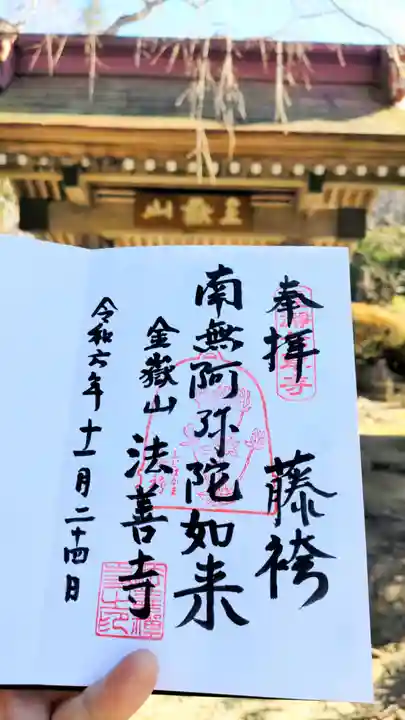 奉拝　藤袴
南無阿弥陀如来
金嶽山　法善寺
令和六年十一月二十四日